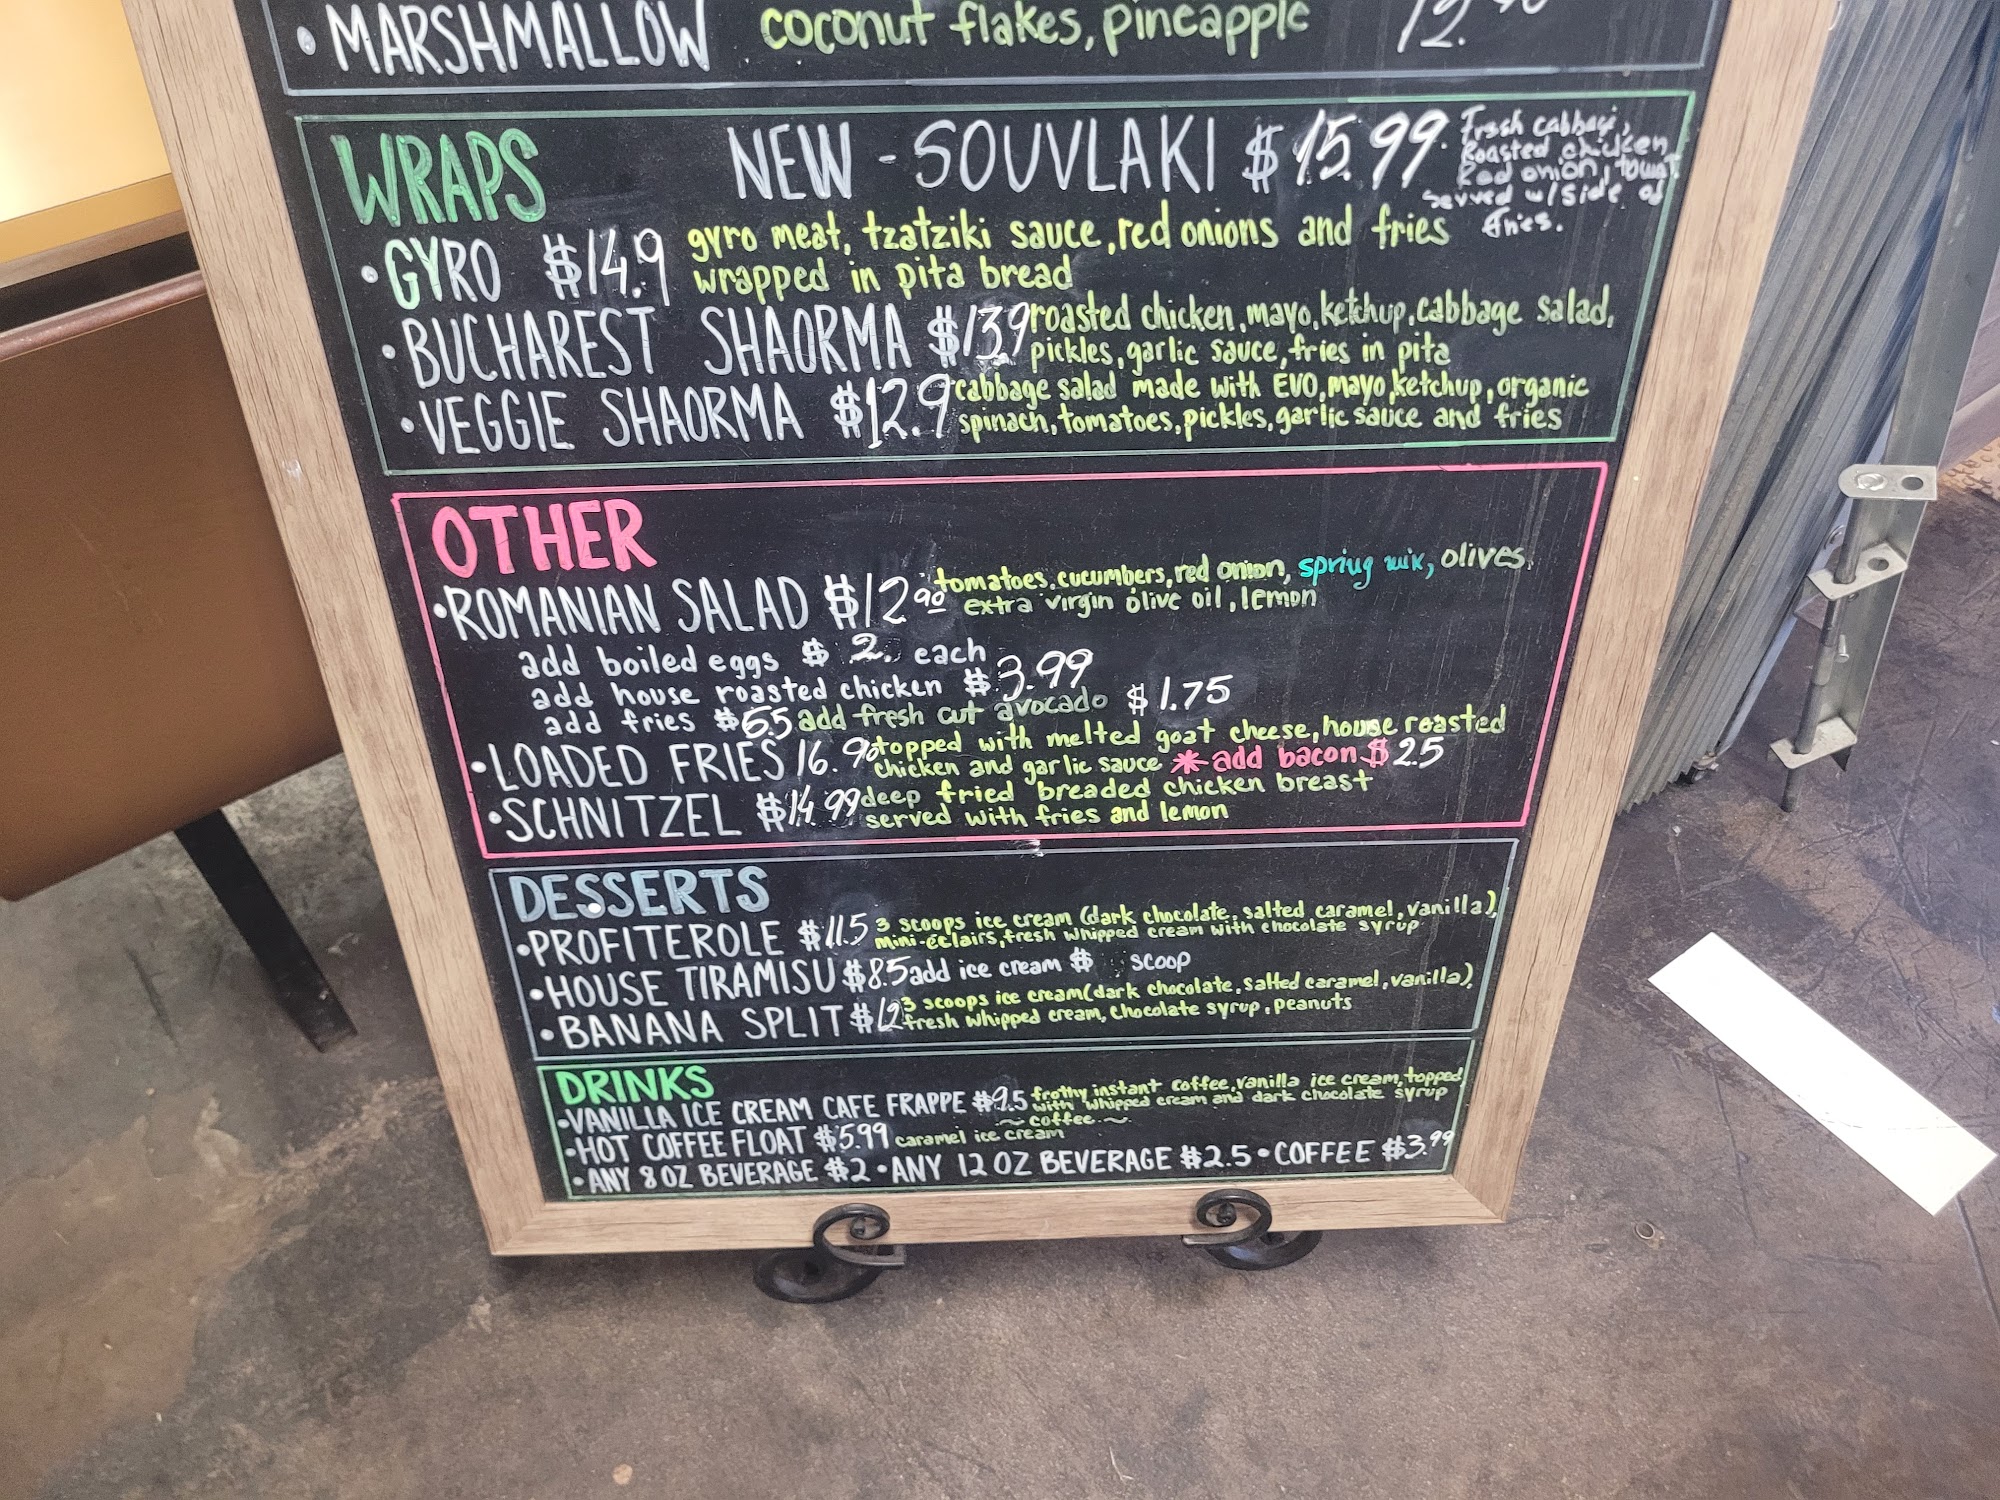 • MARSHMALLOW coconut flakes, pineapple 12.90
WRAPS NEW - SOUVLAKI $15.99
Fresh cabbage,
Roasted chicken,
Red onion,
served w/side of
fries.
• GYRO $14.9 gyro meat, tzatziki sauce, red onions and fries
wrapped in pita bread
• BUCHAREST SHAORMA $139 roasted chicken, mayo, ketchup, cabbage salad,
pickles, garlic sauce, fries in pita
• VEGGIE SHAORMA $12.9 cabbage salad made with EVO, mayo, ketchup, organic
spinach, tomatoes, pickles, garlic sauce and fries
OTHER
• ROMANIAN SALAD $12.90 tomatoes, cucumbers, red onion, spring mix, olives
extra virgin olive oil, lemon
add boiled eggs $2. each
add house roasted chicken $3.99
add fries $5.5 add fresh cut avocado $1.75
• LOADED FRIES 16.90 topped with melted goat cheese, house roasted
chicken and garlic sauce * add bacon $2.5
• SCHNITZEL $14.99 deep fried breaded chicken breast
served with fries and lemon
DESSERTS
• PROFITEROLE $11.5 3 scoops ice cream (dark chocolate, salted caramel, vanilla),
mini-éclairs, fresh whipped cream with chocolate syrup
• HOUSE TIRAMISU $8.5 add ice cream $ scoop
• BANANA SPLIT $12 3 scoops ice cream (dark chocolate, salted caramel, vanilla),
fresh whipped cream, chocolate syrup, peanuts
DRINKS
• VANILLA ICE CREAM CAFE FRAPPE $9.5 frothy instant coffee, vanilla ice cream, topped
with whipped cream and dark chocolate syrup
~ coffee ~
• HOT COFFEE FLOAT $5.99 caramel ice cream
• ANY 8 OZ BEVERAGE $2 • ANY 12 OZ BEVERAGE $2.5 • COFFEE $3.99